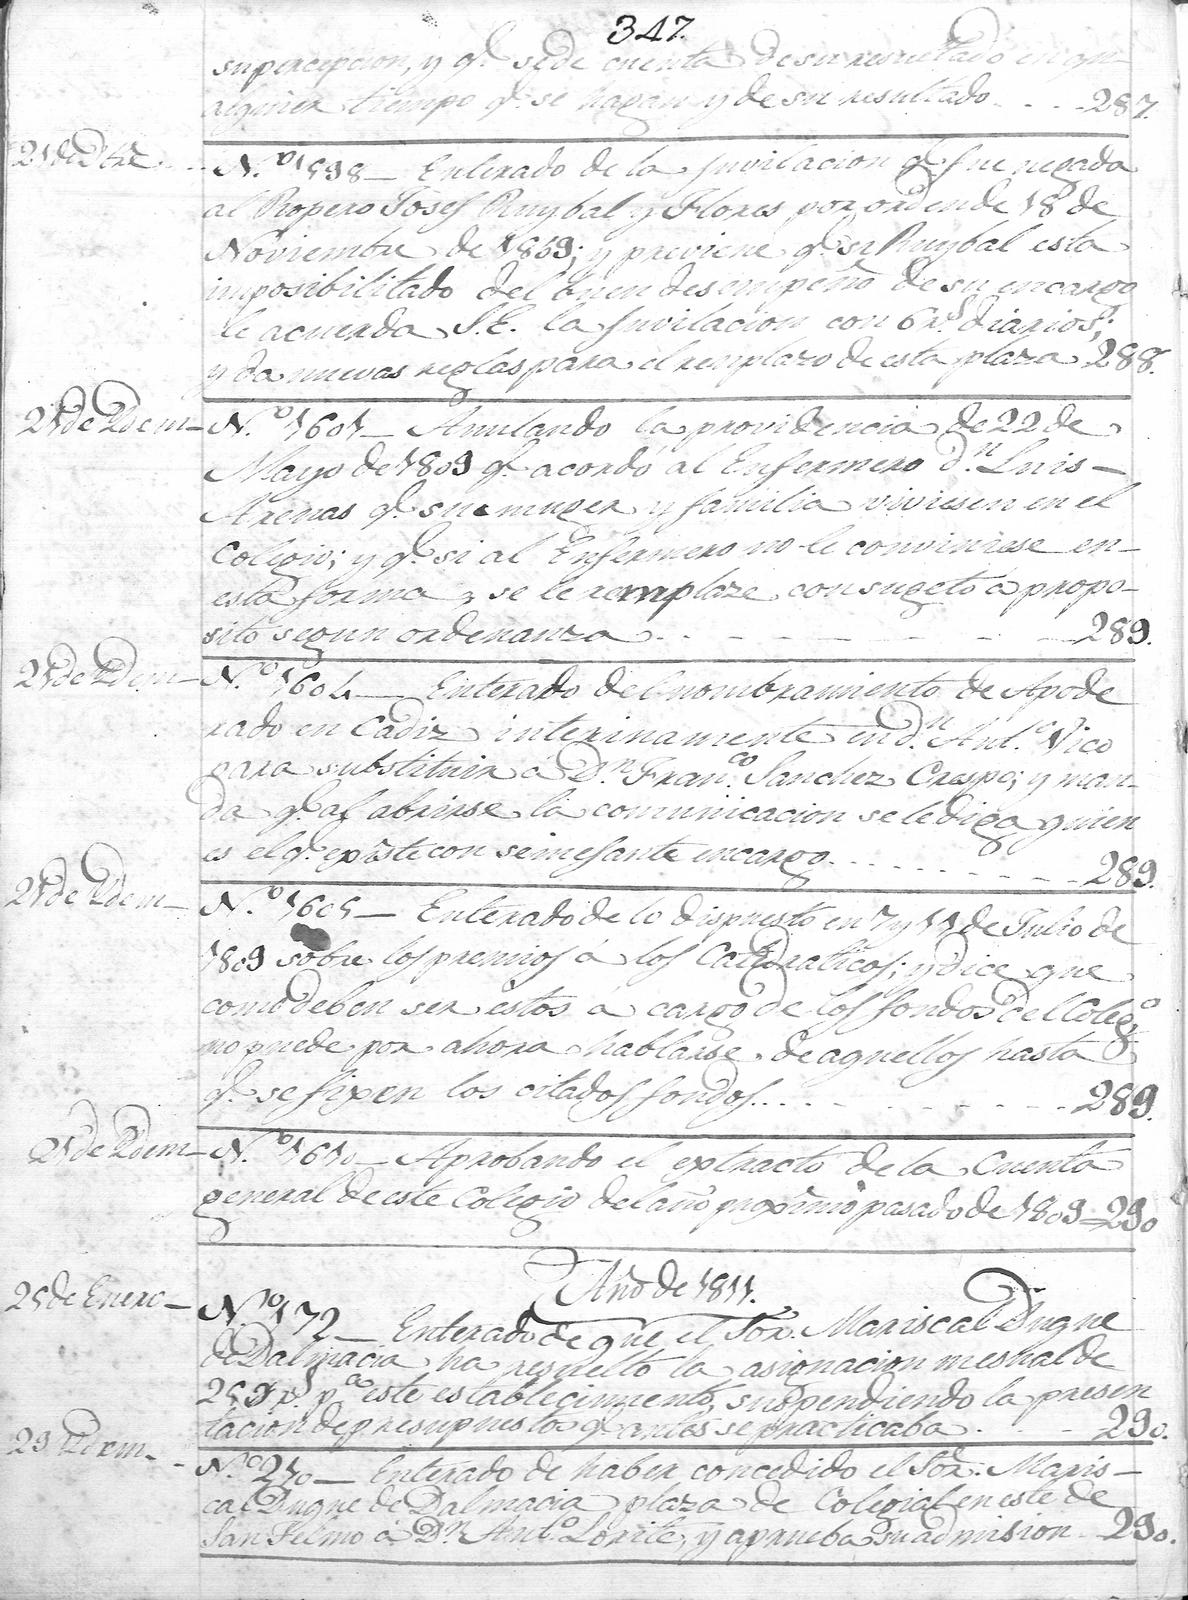 347.
su percepcion, y q.e se dé cuenta de su resultado en qu-
alquier tiempo q.e se hagan y de su resultado - - - 287.
21 de Dbre - - N.º 1598 — Enterado de la Juvilacion q.e fue negada
al Ropero Josef Ruybal y Flores por orden de 18 de
Noviembre de 1809; y previene q.e si Ruybal esta
imposibilitado del buen desempeño de su encargo
le acuerda S.E. la Juvilacion con 6 r.s diarios;
y da nuevas reglas para el remplazo de esta plaza 288.
21 de Ydem — N.º 1601 — Anulando la providencia de 22 de
Mayo de 1809 q.e acordó al Enfermero d.n Luis -
Arenas q.e su muger y familia viviesen en el
Colegio; y q.e si al Enfermero no le conviniese en -
esta forma, se le remplaze con sugeto á propo-
sito segun ordenanza - - - - - 289.
21 de Ydem — N.º 1604 — Enterado del nombramiento de Apode
rado en Cadiz interinamente en d.n Ant.º Vico
para substituir a D.n Fran.co Sanchez Crespo; y man-
da q.e al abrirse la comunicacion se le diga quien
es el q.e existe con semejante encargo - - - - - 289.
21 de Ydem — N.º 1605 — Enterado de lo dispuesto en 7 y 11 de Julio de
1809 sobre los premios á los Catedraticos; y dice que
como deben ser estos a cargo de los fondos del Coleg.º
no puede por ahora hablarse de aquellos hasta
q.e se fixen los citados fondos - - - - - 289.
21 de Ydem — N.º 1610 — Aprobando el extracto de la Cuenta
general de este Colegio del año proximo pasado de 1809 = 290
Año de 1811.
25 de Enero — N.º 172 — Enterado de que el Sor. Mariscal Duque
de Dalmacia ha resuelto la asignacion mensual de
p.a este establecimiento, suspendiendo la presen
tacion de presupuestos q.e antes se practicaba - - - 290.
29 Ydem - - N.º 210 — Enterado de haber concedido el Sor. Maris -
cal Duque de Dalmacia plaza de Colegial en este de
San Telmo á D.n Ant.º Lorite, y aprueba su admision - 290.